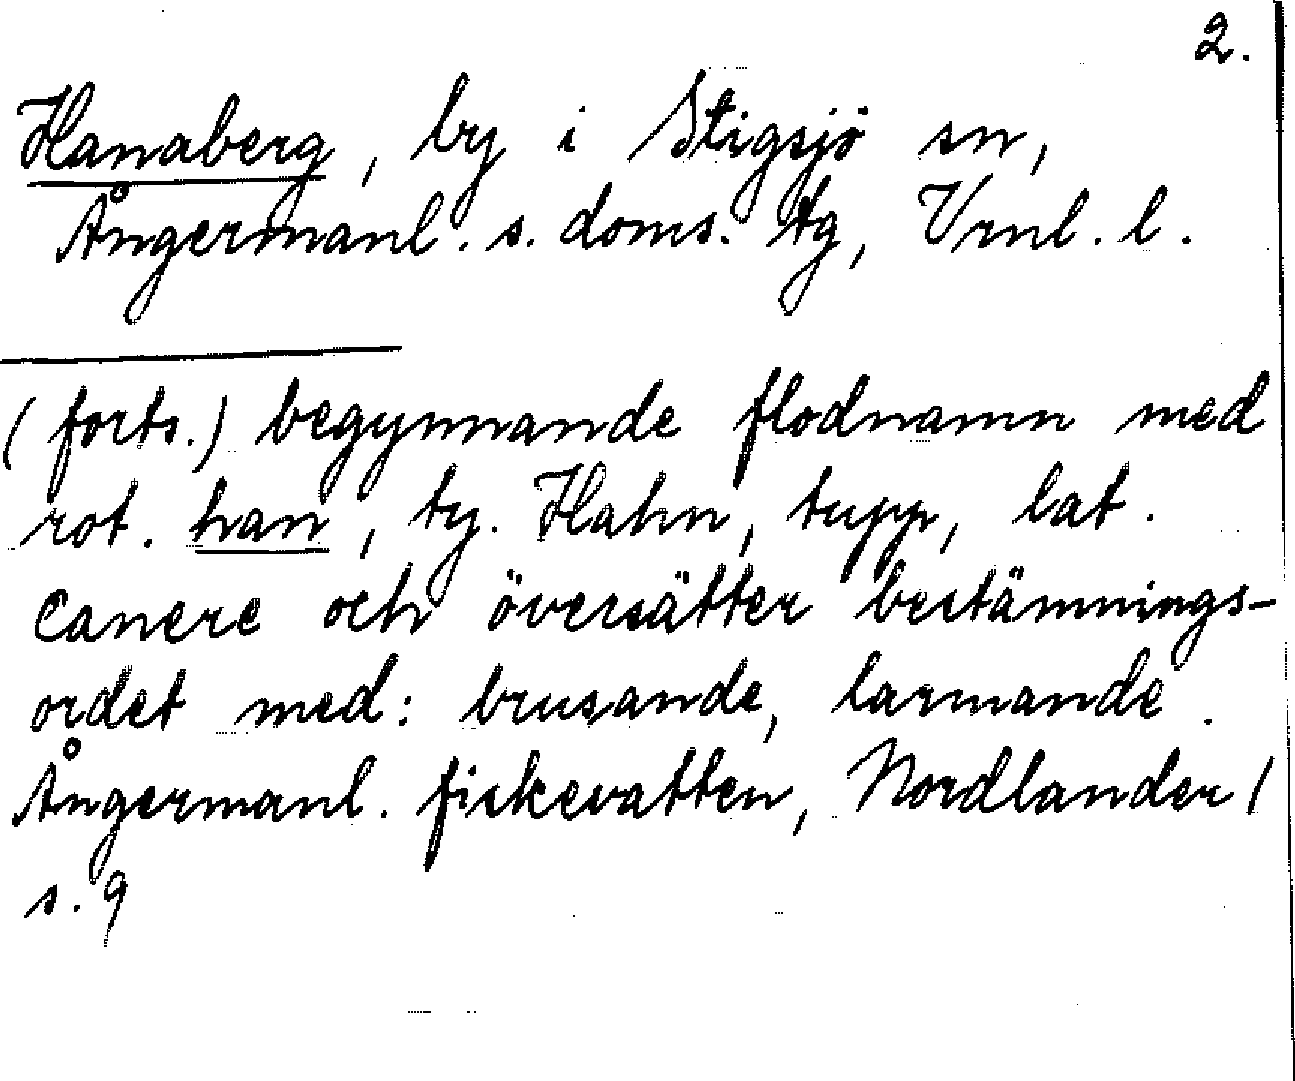 2.
Hanaberg, by i Stigsjö sn,
Ångermanl. s. doms. tg, Vrnl. l.
(forts.) begynnande flodnamn med
rot. han, ty. Hahn, tupp, lat.
canere och översätter bestämnings-
ordet med: brusande, larmande.
Ångermanl. fiskevatten, Nordlander /
s. 9